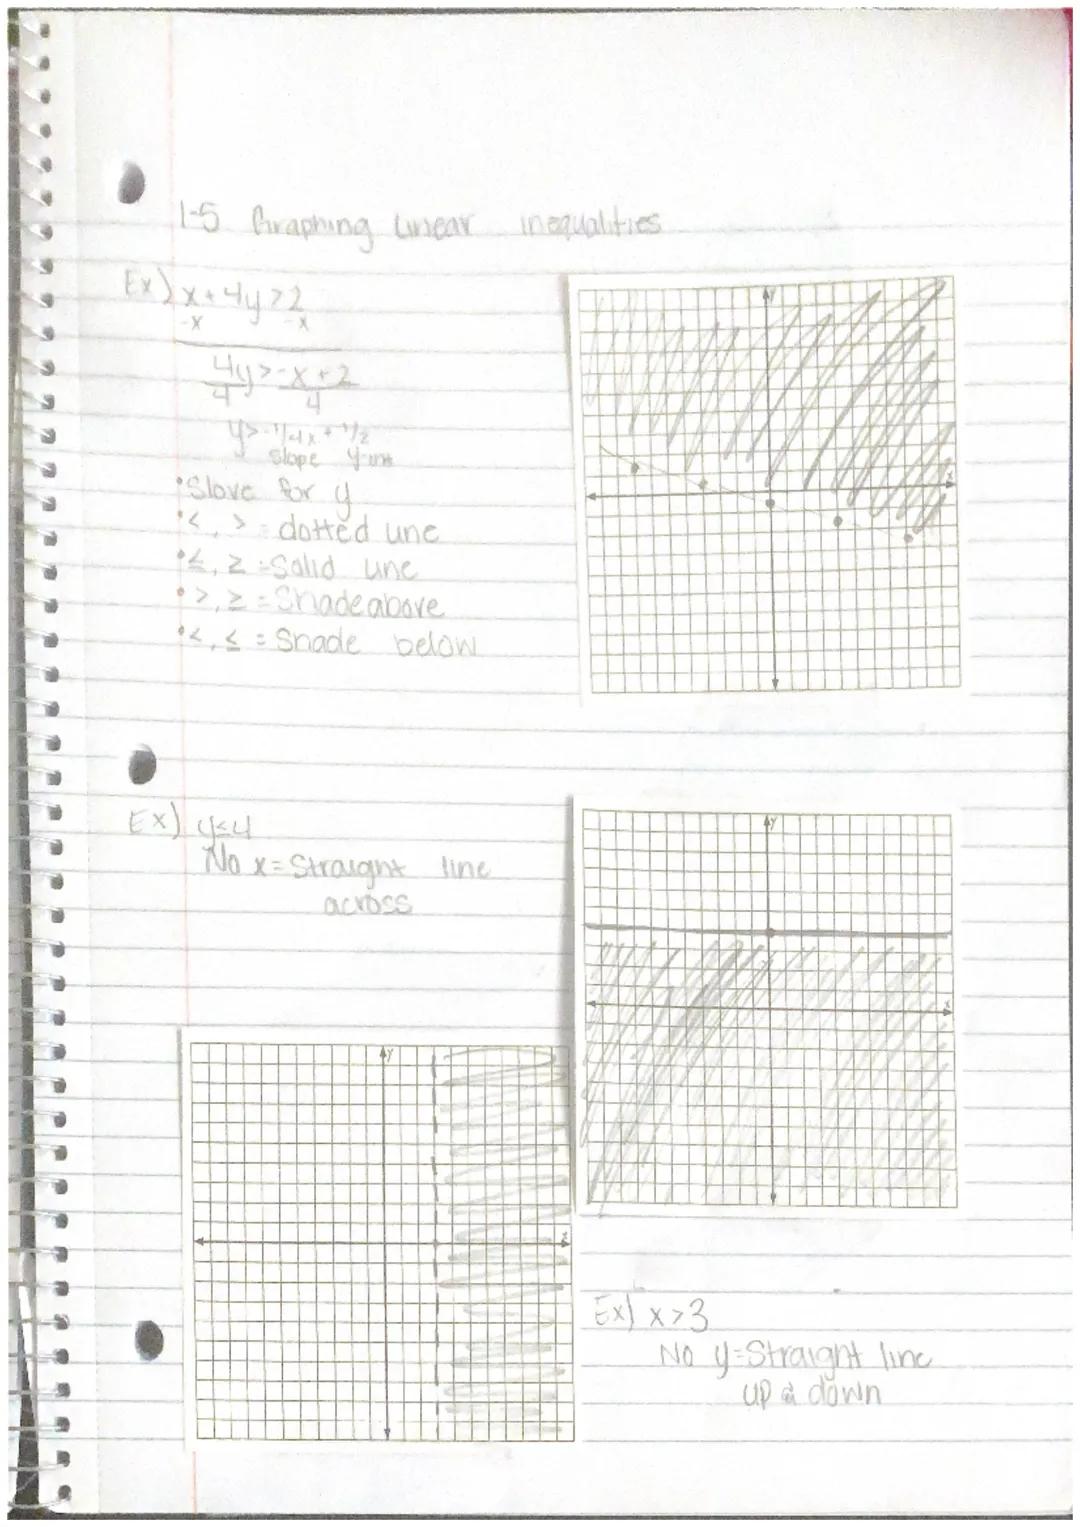 1-5 Graphing Linear inequalities
Ex) x+4y>2
-x -x
4y>-x+2
4 4
y>-1/4x+1/2
slope y-int
•Slove for y
•<, > = dotted line
•≤, ≥ = Solid line
•>, ≥ = Shade above
•<, ≤ = Shade below
y
x
Ex) y≤4
No x=Straight line
across
y
x
y
x
Ex) x>3
No y=Straight line
up & down